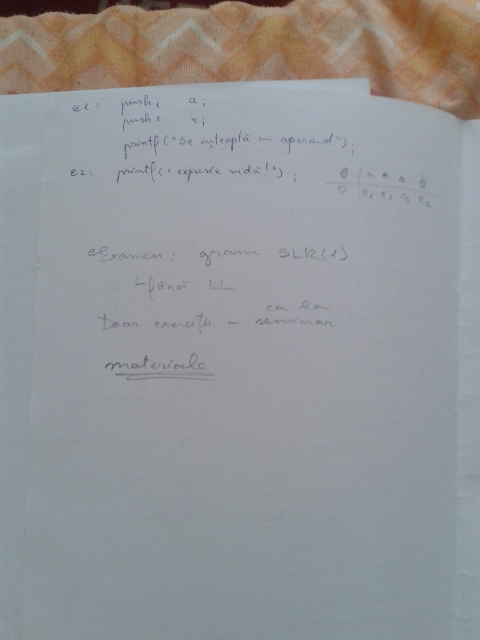 e1: push a;
push
printf("se așteaptă un operand");
e2: printf("expresie vidă!");
Examen: gram SLR(1)
până LL
Doar exerciții - ca la seminar
materiale